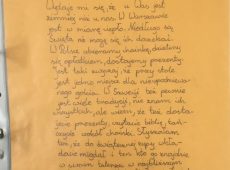 Wydaje mi się, że u Was jest
zimniej niż u nas. W Warszawie
jest w miarę ciepło. Niedługo są
Święta nie mogę się ich doczekać.
W Polsce ubieramy choinkę, dzielimy
się opłatkiem, dostajemy prezenty.
Jest taki zwyczaj, że przy stole
jest jedno miejsce dla niespodziewa-
nego gościa. W Szwecji też pewnie
jest wiele tradycji, nie znam ich
wszystkich, ale wiem, że też dosta-
jecie prezenty, czytacie biblię, tań-
czycie wokół choinki. Słyszałam
też, że do świątecznej ryżu wkła-
dacie migdał i ten kto go znajdzie
w swoim talerzu w najbliższym